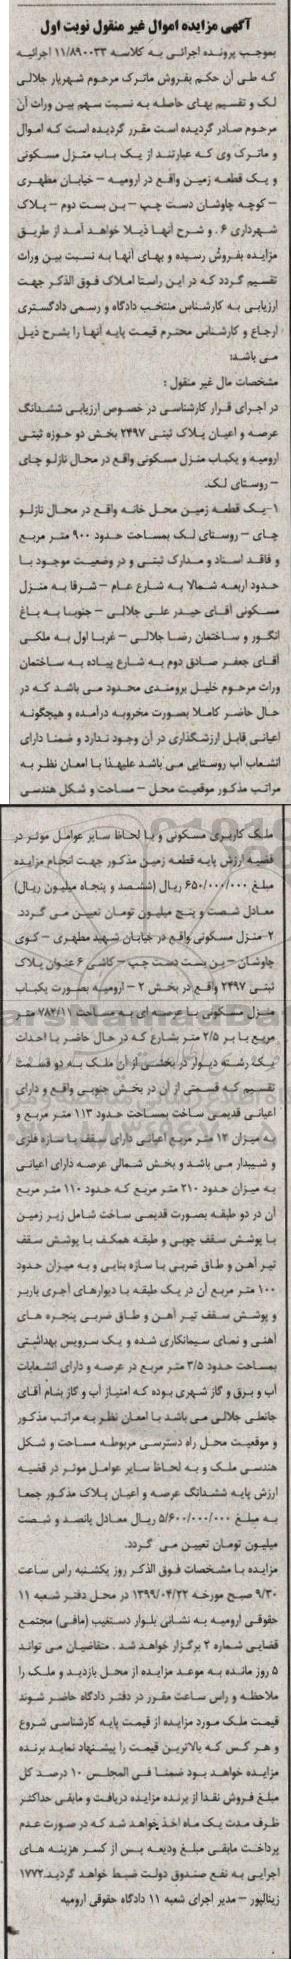 آگهی مزایده اموال غیر منقول نوبت اول
بموجب پرونده اجرائی به کلاسه ۱۱/۸۹۰۰۳۳ اجرائیه
که طی آن حکم بفروش ماترک مرحوم شهریار جلالی
لک و تقسیم بهای حاصله به نسبت سهم بین وراث آن
مرحوم صادر گردیده است مقرر گردیده است که اموال
و ماترک وی که عبارتند از یک باب منزل مسکونی
و یک قطعه زمین واقع در ارومیه – خیابان مطهری
– کوچه چاوشان دست چپ – بن بست دوم – پلاک
شهرداری ۶ . و شرح آنها ذیلا خواهد آمد از طریق
مزایده بفروش رسیده و بهای آنها به نسبت بین وراث
تقسیم گردد که در این راستا املاک فوق الذکر جهت
ارزیابی به کارشناس منتخب دادگاه و رسمی دادگستری
ارجاع و کارشناس محترم قیمت پایه آنها را بشرح ذیل
می باشد:
مشخصات مال غیر منقول :
در اجرای قرار کارشناسی در خصوص ارزیابی ششدانگ
عرصه و اعیان پلاک ثبتی ۲۴۹۷ بخش دو حوزه ثبتی
ارومیه و یکباب منزل مسکونی واقع در محال نازلو چای
– روستای لک.
۱-یک قطعه زمین محل خانه واقع در محال نازلو
چای – روستای لک بمساحت حدود ۹۰۰ متر مربع
و فاقد اسناد و مدارک ثبتی و در وضعیت موجود با
حدود اربعه شمالا به شارع عام – شرقا به منزل
مسکونی آقای حیدر علی جلالی – جنوبا به باغ
انگور و ساختمان رضا جلالی – غربا اول به ملکی
آقای جعفر صادق دوم به شارع پیاده به ساختمان
وراث مرحوم خلیل برومندی محدود می باشد که در
حال حاضر کاملا بصورت مخروبه درآمده و هیچگونه
اعیانی قابل ارزشگذاری در آن وجود ندارد و ضمنا دارای
انشعاب آب روستایی می باشد علیهذا با امعان نظر به
مراتب مذکور موقعیت محل – مساحت و شکل هندسی
ملک کاربری مسکونی و با لحاظ سایر عوامل موثر در
قضیه ارزش پایه قطعه زمین مذکور جهت انجام مزایده
مبلغ ۶۵۰/۰۰۰/۰۰۰ ریال (ششصد و پنجاه میلیون ریال)
معادل شصت و پنج میلیون تومان تعیین می گردد.
۲-منزل مسکونی واقع در خیابان شهید مطهری – کوی
چاوشان – بن بست دست چپ – کاشی ۶ عنوان پلاک
ثبتی ۲۴۹۷ واقع در بخش ۲ – ارومیه بصورت یکباب
منزل مسکونی با عرصه ای به مساحت ۷۸۲/۱۱ متر
مربع با بر ۲/۵ متر بشارع که در حال حاضر با احداث
یک رشته دیوار در بخشی از آن ملک به دو قسمت
تقسیم که قسمتی از آن در بخش جنوبی واقع و دارای
اعیانی قدیمی ساخت بمساحت حدود ۱۱۳ متر مربع و
به میزان ۱۴ متر مربع اعیانی دارای سقف با سازه فلزی
و شیبدار می باشد و بخش شمالی عرصه دارای اعیانی
به میزان حدود ۲۱۰ متر مربع که حدود ۱۱۰ متر مربع
آن در دو طبقه بصورت قدیمی ساخت شامل زیر زمین
با پوشش سقف چوبی و طبقه همکف با پوشش سقف
تیر آهن و طاق ضربی با سازه بنایی و به میزان حدود
۱۰۰ متر مربع آن در یک طبقه با دیوارهای آجری باربر
و پوشش سقف تیر آهن و طاق ضربی پنجره های
آهنی و نمای سیمانکاری شده و یک سرویس بهداشتی
بمساحت حدود ۳/۵ متر مربع در عرصه و دارای انشعابات
آب و برق و گاز شهری بوده که امتیاز آب و گاز بنام آقای
جانعلی جلالی می باشد با امعان نظر به مراتب مذکور
و موقعیت محل راه دسترسی مربوطه مساحت و شکل
هندسی ملک و به لحاظ سایر عوامل موثر در قضیه
ارزش پایه ششدانگ عرصه و اعیان پلاک مذکور جمعا
به مبلغ ۵/۶۰۰/۰۰۰/۰۰۰ ریال معادل پانصد و شصت
میلیون تومان تعیین می گردد.
مزایده با مشخصات فوق الذکر روز یکشنبه راس ساعت
۹/۳۰ صبح مورخه ۱۳۹۹/۰۴/۲۲ در محل دفتر شعبه ۱۱
حقوقی ارومیه به نشانی بلوار دستغیب (مافی) مجتمع
قضایی شماره ۲ برگزار خواهد شد . متقاضیان می تواند
۵ روز مانده به موعد مزایده از محل بازدید و ملک را
ملاحظه و راس ساعت مقرر در دفتر دادگاه حاضر شوند
قیمت ملک مورد مزایده از قیمت پایه کارشناسی شروع
و هر کس که بالاترین قیمت را پیشنهاد نماید برنده
مزایده خواهد بود ضمنا فی المجلس ۱۰ درصد کل
مبلغ فروش نقدا از برنده مزایده دریافت و مابقی حداکثر
ظرف مدت یک ماه اخذ خواهد شد که در صورت عدم
پرداخت مابقی مبلغ ودیعه پس از کسر هزینه های
اجرایی به نفع صندوق دولت ضبط خواهد گردید.۱۷۷۲
زینالپور – مدیر اجرای شعبه ۱۱ دادگاه حقوقی ارومیه